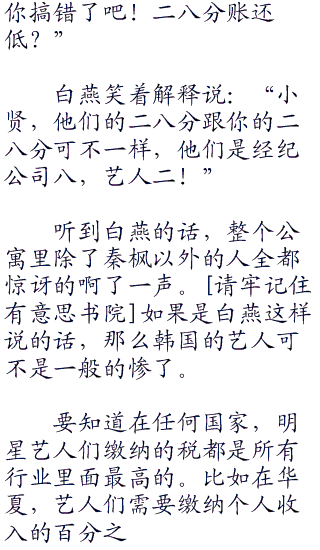 你搞错了吧！二八分账还
低？”
白燕笑着解释说：“小
贤，他们的二八分跟你的二
八分可不一样，他们是经纪
公司八，艺人二！”
听到白燕的话，整个公
寓里除了秦枫以外的人全都
惊讶的啊了一声。[请牢记住
有意思书院]如果是白燕这样
说的话，那么韩国的艺人可
不是一般的惨了。
要知道在任何国家，明
星艺人们缴纳的税都是所有
行业里面最高的。比如在华
夏，艺人们需要缴纳个人收
入的百分之